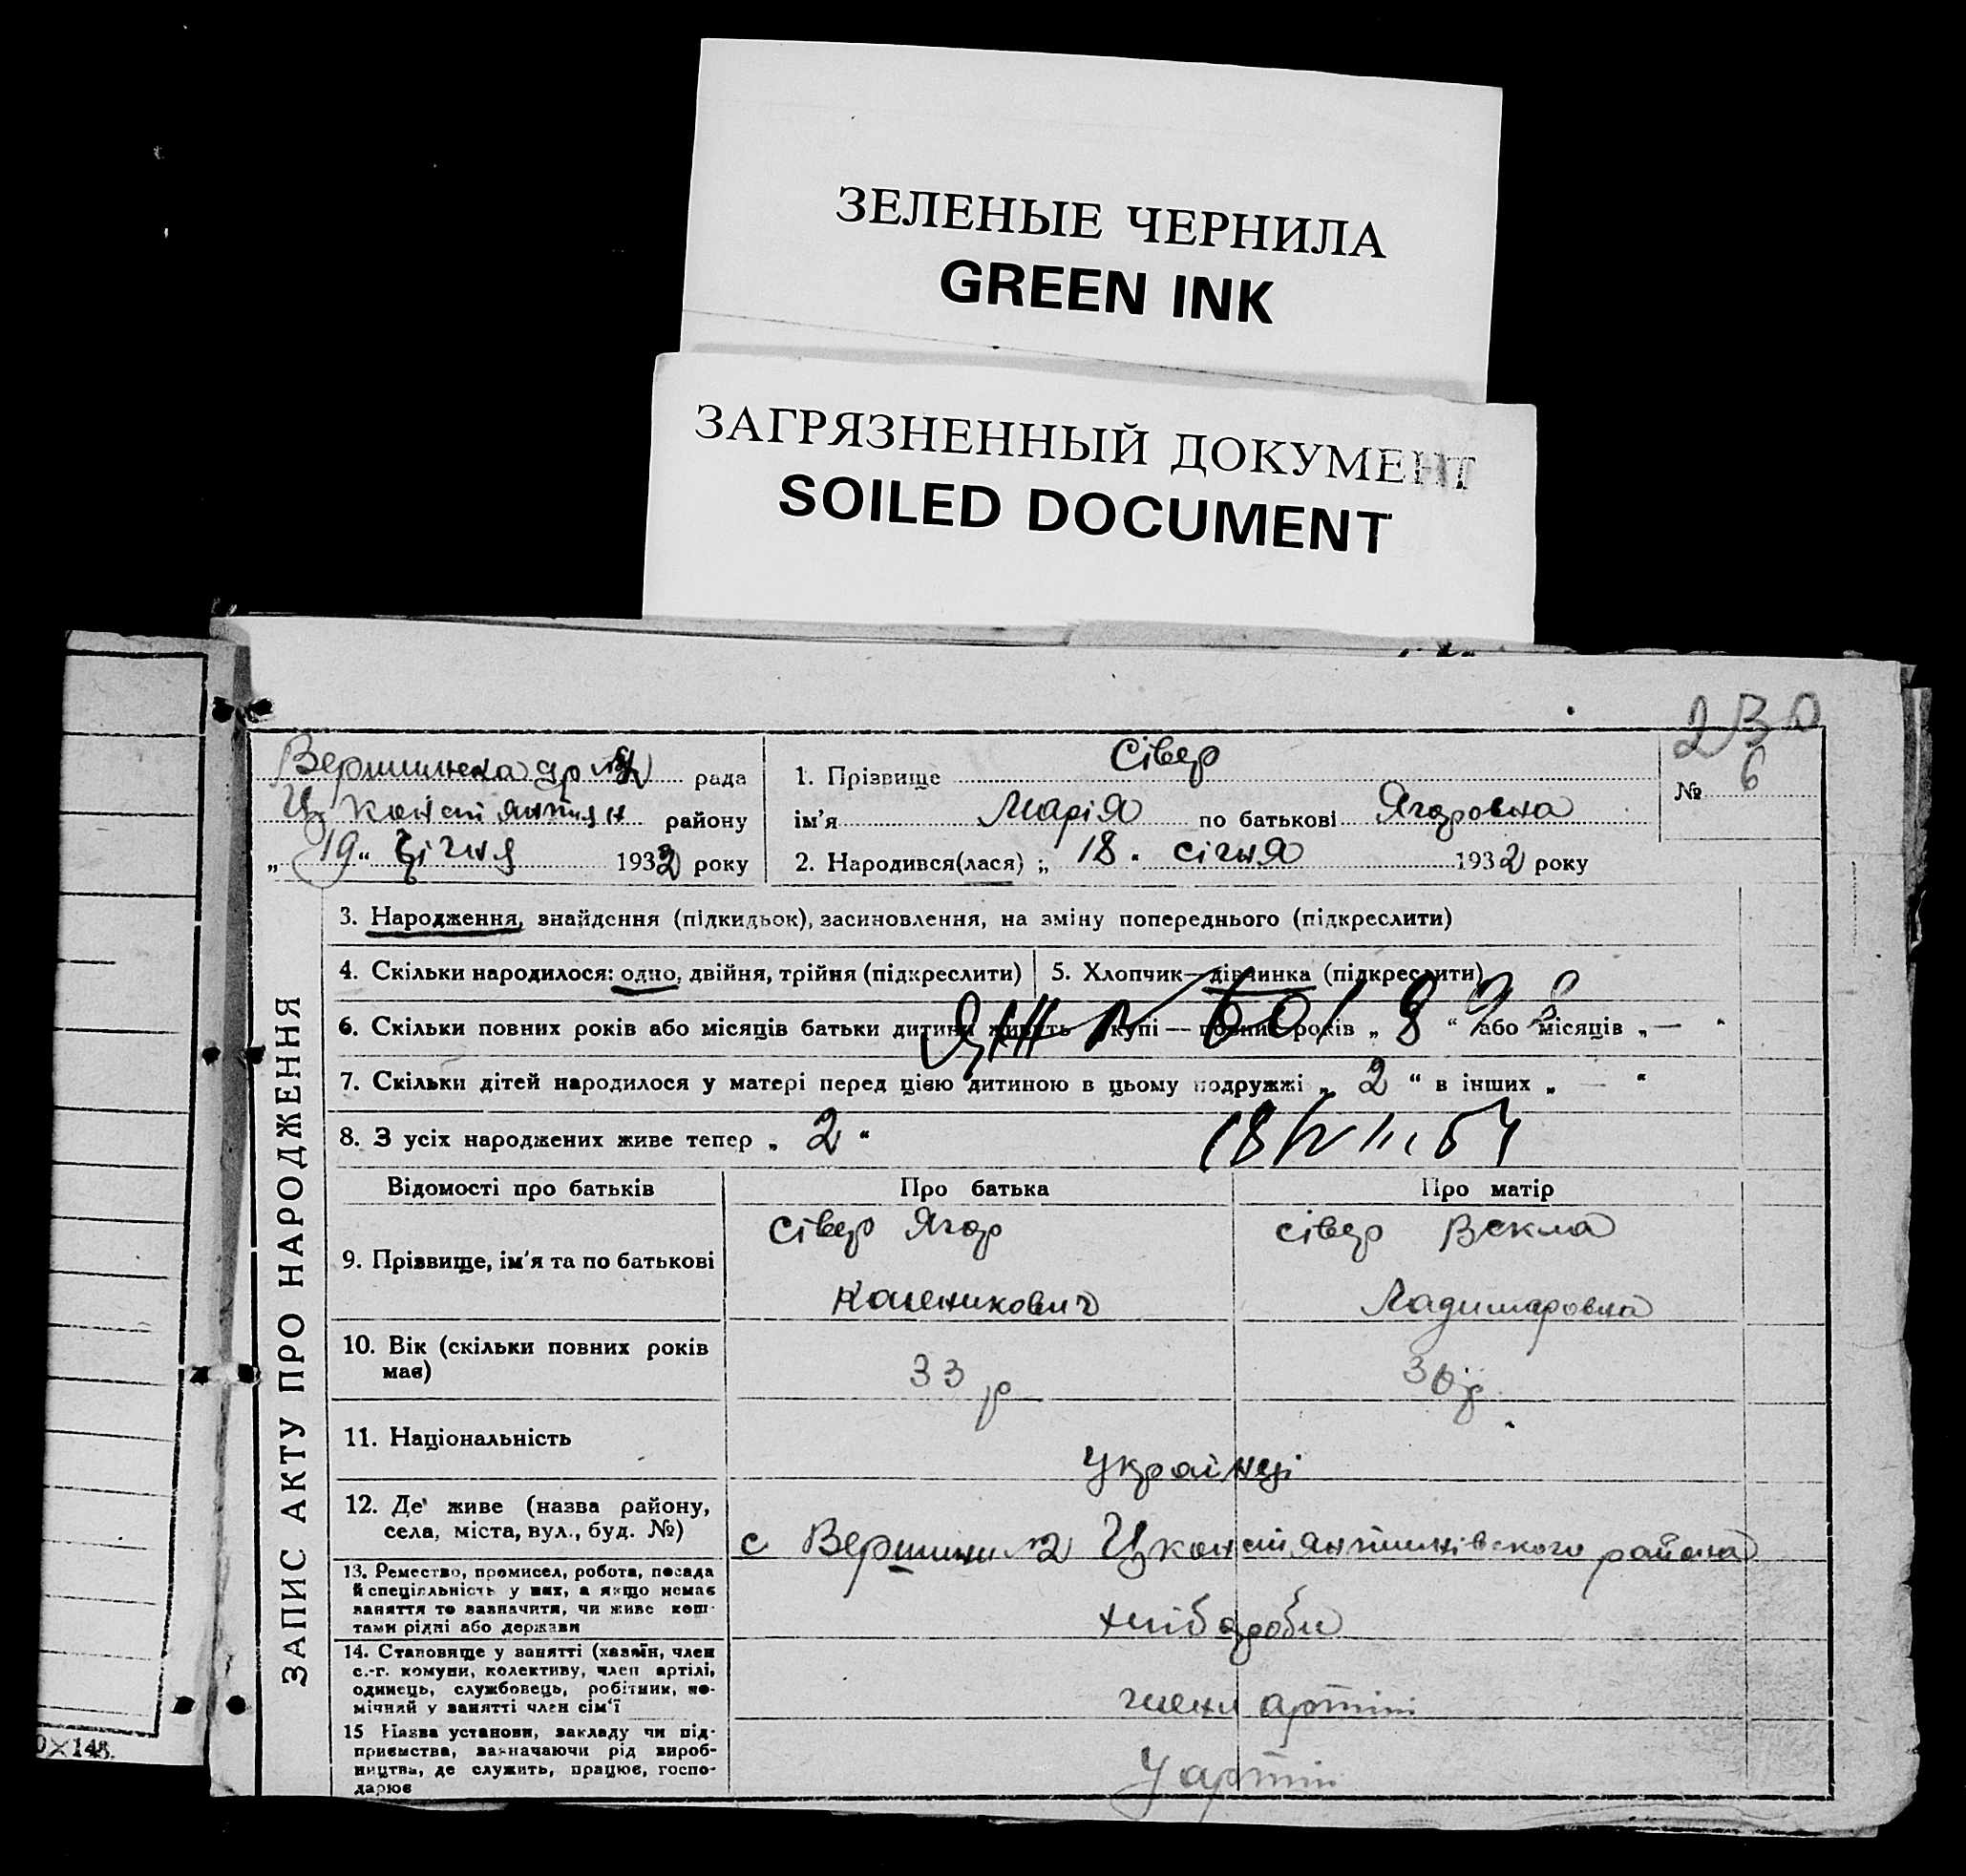 ЗЕЛЕНЫЕ ЧЕРНИЛА
GREEN INK
ЗАГРЯЗНЕННЫЙ ДОКУМЕНТ
SOILED DOCUMENT
230
рада
району
„ 19 “ січня 1932 року
1. Прізвище Сівер
ім'я Марія по батькові Ягоровна
2. Народився(лася) „ 18 . січня 1932 року
№ 6
ЗАПИС АКТУ ПРО НАРОДЖЕННЯ
3. Народження, знайдення (підкидьок), засиновлення, на зміну попереднього (підкреслити)
4. Скільки народилося: одно, двійня, трійня (підкреслити)
5. Хлопчик—дівчинка (підкреслити)
6. Скільки повних років або місяців батьки дитини живуть вкупі — повних років „ 8 “ або місяців „ — “
7. Скільки дітей народилося у матері перед цією дитиною в цьому подружжі „ 2 “ в інших „ — “
8. З усіх народжених живе тепер „ 2 “
Відомості про батьків
Про батька
Про матір
9. Прізвище, ім'я та по батькові
Сівер Ягор
сівер Векла
Ладимаровна
10. Вік (скільки повних років
має)
33 р
30 р.
11. Національність
українці
12. Де живе (назва району,
села, міста, вул., буд. №)
с Цконстянтинівского района
13. Ремество, промисел, робота, посада
й спеціяльність у них, а якщо немає
заняття то зазначити, чи живе кош-
тами рідні або держави
хлібороби
14. Становище у занятті (хазяїн, член
с.-г. комуни, колективу, член артілі,
одинець, службовець, робітник, по-
мічний у занятті член сім'ї
члени артілі
15 Назва установи, закладу чи під-
приємства, зазначаючи рід вироб-
ництва, де служить, працює, госпо-
дарює
У артілі
0×148.